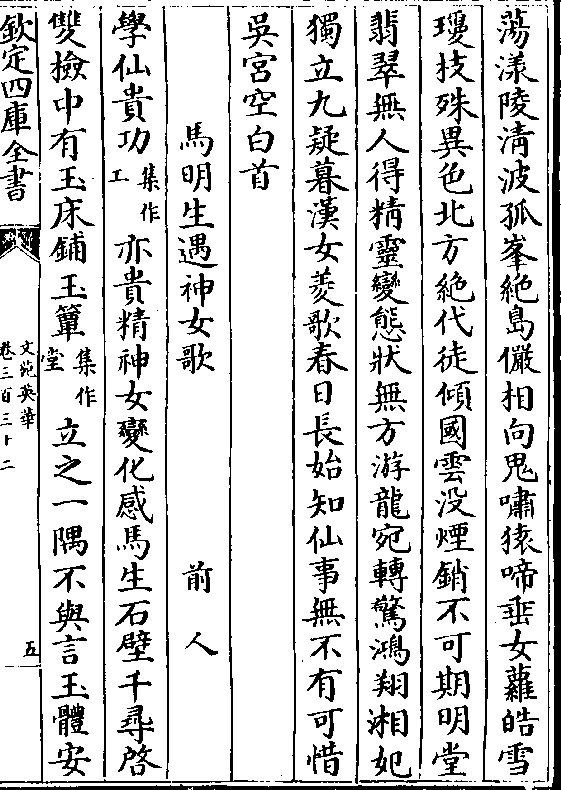 蕩漾陵清波孤峯絶島儼相向鬼嘯猿啼垂女蘿皓雪
瓊枝殊異色北方絶代徒傾國雲没煙銷不可期明堂
翡翠無人得精靈變態狀無方游龍宛轉驚鴻翔湘妃
獨立九疑暮漢女菱歌春日長始知仙事無不有可惜
吳宮空白首
馬明生遇神女歌 前人
學仙貴功集作工亦貴精神女變化感馬生石壁千尋啓
雙檢中有玉床鋪玉簟集作堂立之一隅不與言玉體安
欽定四庫全書
文苑英華
卷三百三十二
五